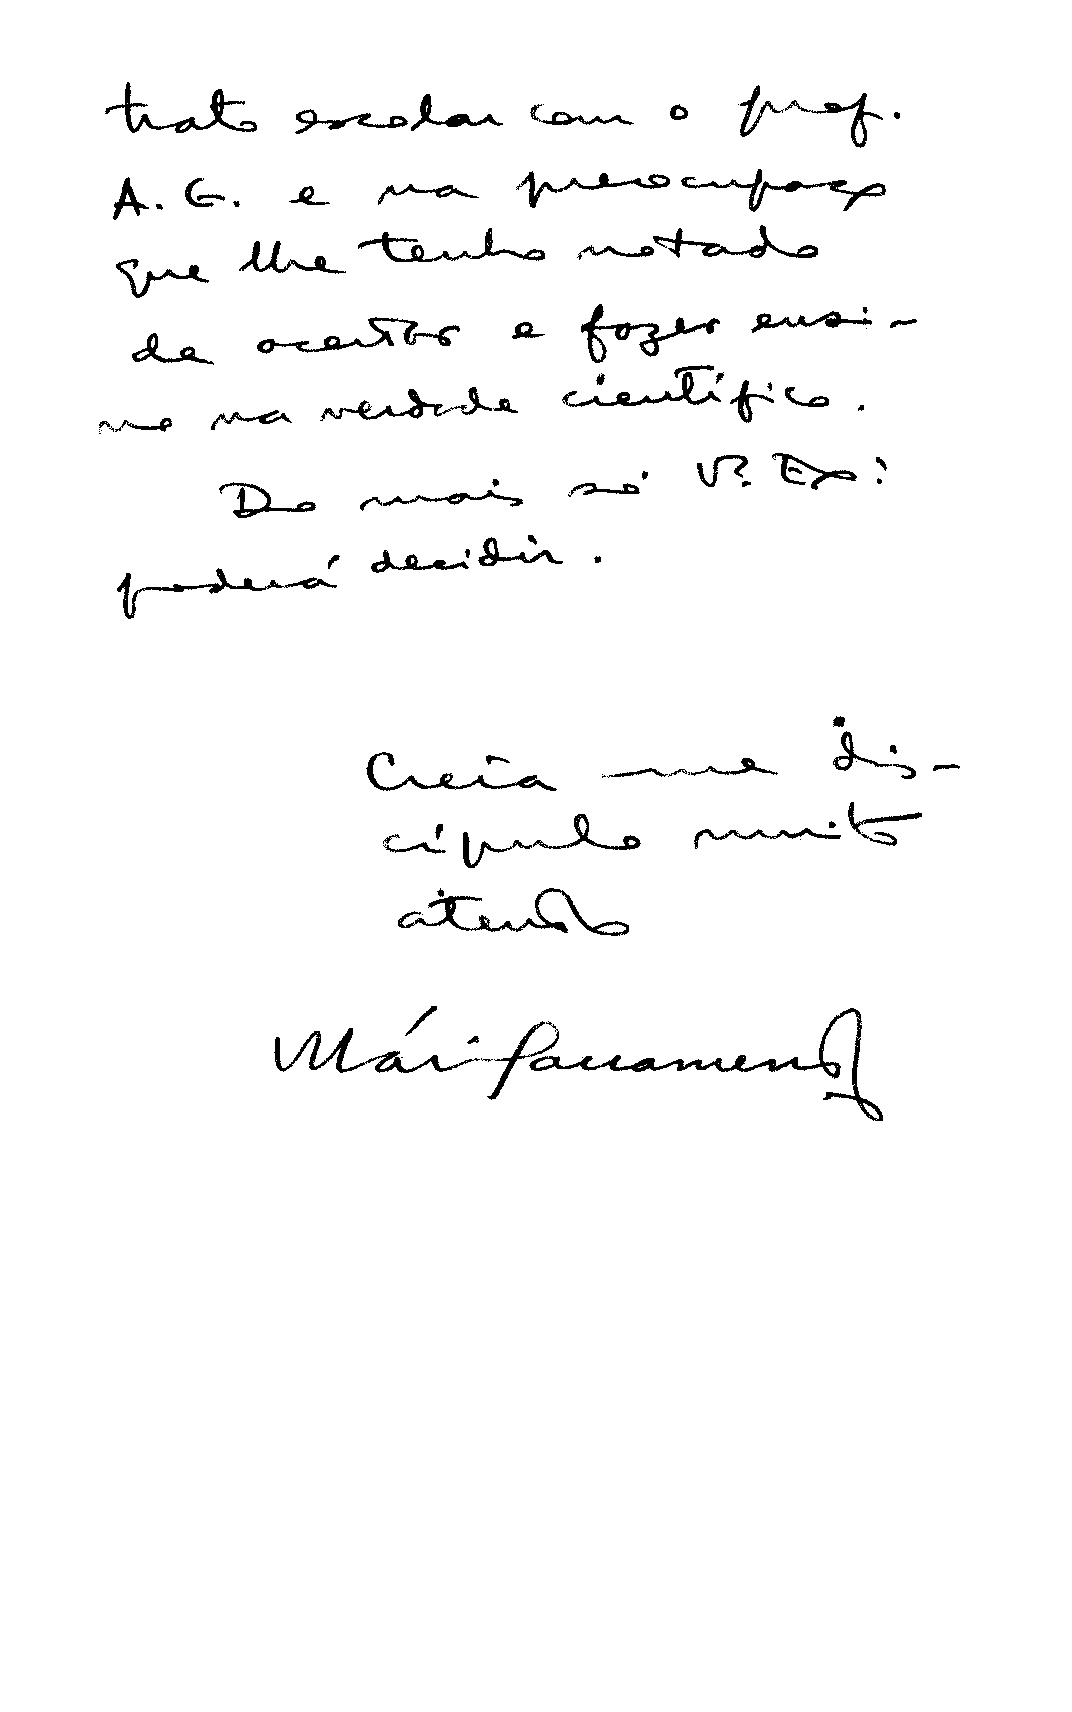 trato escolar com o prof.
A. G. e na preocupação
que lhe tenho notado
de acertar e fazer ensi-
no na verdade científica.
Do mais só V. Ex.ª
poderá decidir.
Creia-me dis-
cípulo muito
atento
Mário Sacramento